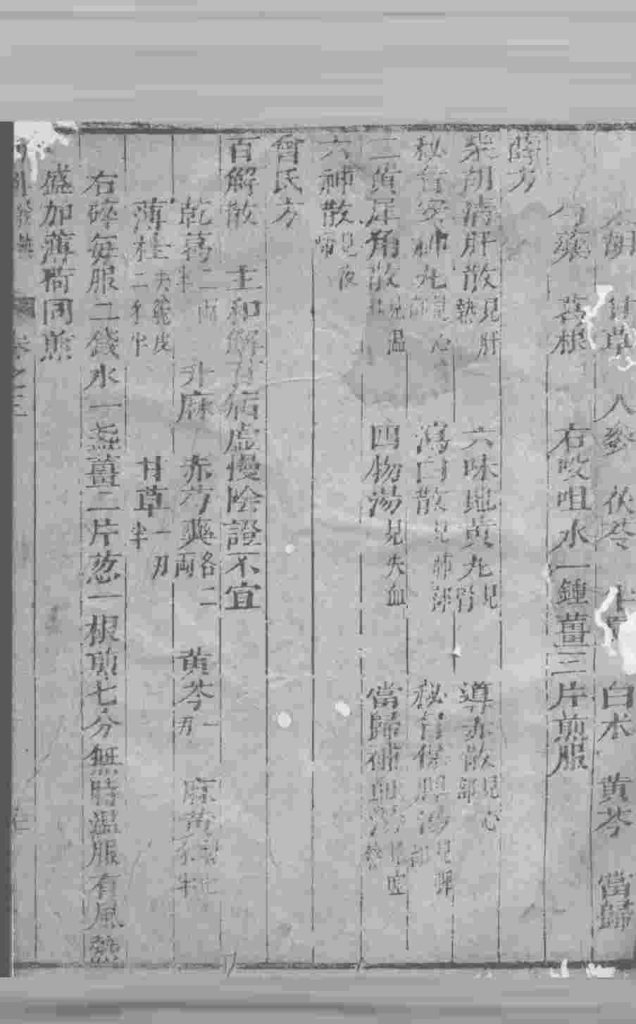 胡 甘草 人參 茯苓 白朮 黄芩 當歸
芍藥 葛根 右㕮咀水一鍾薑三片煎服
薛方
柴胡清肝散見肝熱 六味地黄丸見腎 導赤散見心部
秘旨安神丸見心部 瀉白散見肺部 秘旨保脾湯見脾部
三黄犀角散見温 四物湯見失血 當歸補血湯見虚
六神散見夜啼
曾氏方
百解散 主和解百病虚慢陰證不宜
乾葛二兩半 升麻 赤芍藥各二兩 黄芩一兩 麻黄
薄桂去麁皮二錢半 甘草一兩半
右碎每服二錢水一盞薑二片葱一根煎七分無時温服有風熱
盛加薄荷同煎
卷之三